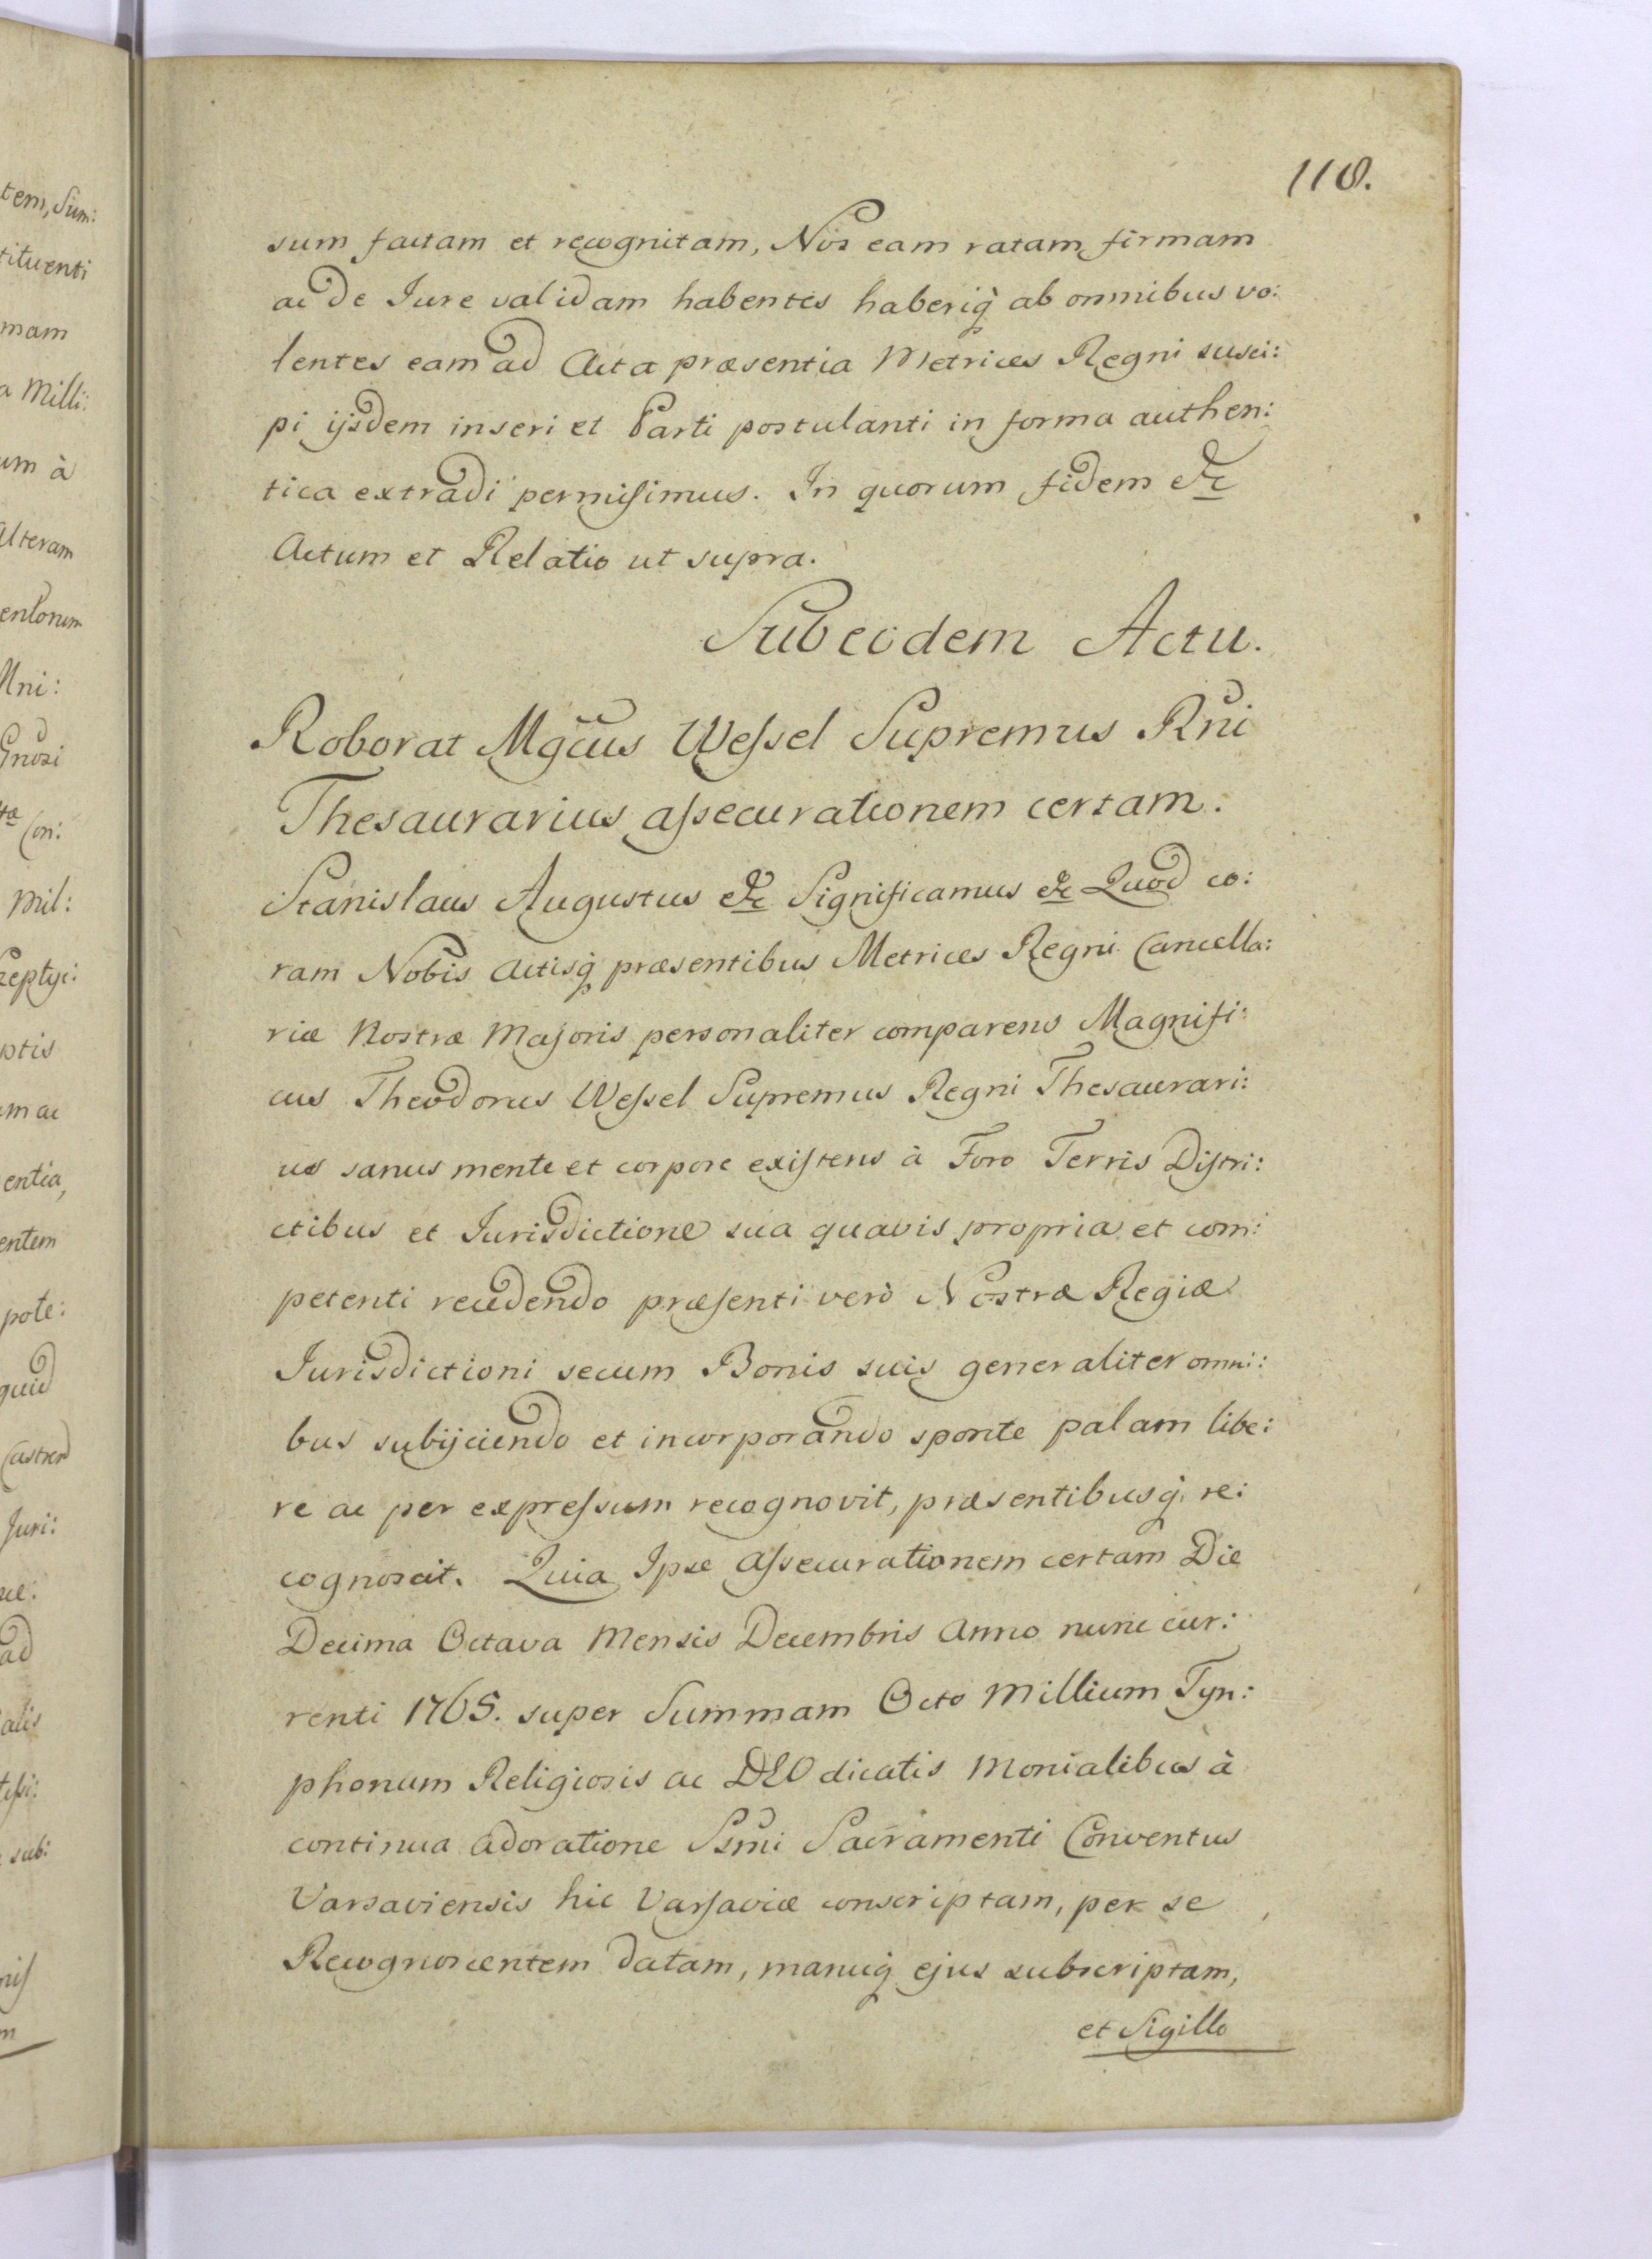 118.
sum factam et recognitam, Nos eam ratam firmam
ac de Jure validam habentes haberiq̀ ab omnibus vo:
lentes eam ad Acta præsentia Metrices Regni susci:
pi ijsdem inseri et Parti postulanti in forma authen:
tica extradi permisimus. In quorum fidem &c
Actum et Relatio ut supra.
Sub eodem Actu.
Roborat Mgcus Wessel Supremus Rni
Thesaurarius assecurationem certam.
Stanislaus Augustus &c Significamus &c Quod co:
ram Nobis Actisq̀ præsentibus Metrices Regni Cancella:
riæ Nostræ Majoris personaliter comparens Magnifi:
cus Theodorus Wessel Supremus Regni Thesaurari:
us sanus mente et corpore existens à Foro Terris Distri:
ctibus et Jurisdictione sua quavis propria et com:
petenti recedendo præsenti verò Nostræ Regiæ
Jurisdictioni secum Bonis suis generaliter omni:
bus subijciendo et incorporando sponte palam libe:
re ac per expressum recognovit, præsentibusq̀ re:
cognoscit. Quia Ipse Assecurationem certam Die
Decima Octava Mensis Decembris Anno nunc cur:
renti 1765. super Summam Octo Millium Tyn:
phonum Religiosis ac DEO dicatis Monialibus à
continua Adoratione Ssmi Sacramenti Conventus
Varsaviensis hic Varsaviæ conscriptam, per se
Recognoscentem datam, manuq̀ ejus subscriptam,
et Sigillo